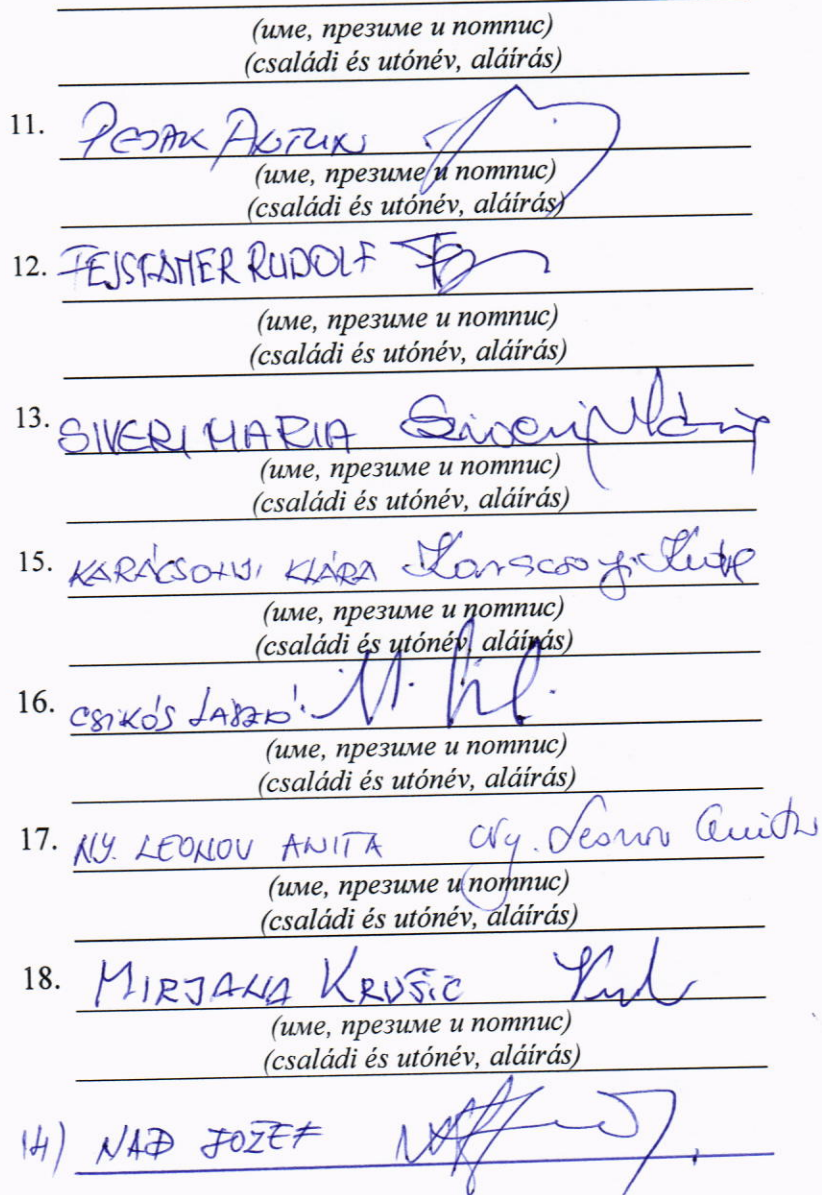 (име, презиме и потпис)
(családi és utónév, aláírás)
11. PESAK ANTUN
(име, презиме и потпис)
(családi és utónév, aláírás)
12. RUDOLF
(име, презиме и потпис)
(családi és utónév, aláírás)
13. SIVERI MARIA Siveri Mária
(име, презиме и потпис)
(családi és utónév, aláírás)
15. KARÁCSONYI KLÁRA
(име, презиме и потпис)
(családi és utónév, aláírás)
16. CSIKÓS LÁSZLÓ
(име, презиме и потпис)
(családi és utónév, aláírás)
17. NY. LEONOV ANITA Ny. Leonov Anita
(име, презиме и потпис)
(családi és utónév, aláírás)
18. MIRJANA KRUŠIĆ
(име, презиме и потпис)
(családi és utónév, aláírás)
14) NAĐ JOŽEF